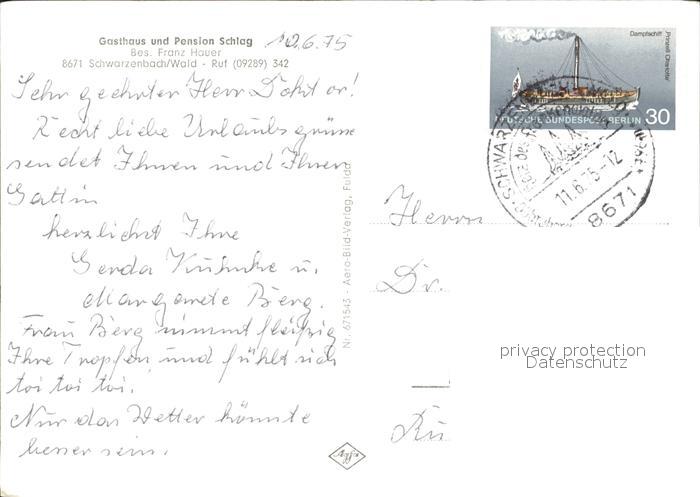 Gasthaus und Pension Schlag
Bes. Franz Hauer
8671 Schwarzenbach/Wald - Ruf (09289) 342
10.6.75
Sehr geehrter Herr Doktor!
Recht liebe Urlaubsgrüsse
sendet Ihnen und Ihrer
Gattin
herzlichst Ihre
Gerda Kuhnke u.
Margarete Berg.
Frau Berg nimmt fleißig
Ihre Tropfen und fühlt sich
toi toi toi.
Nur das Wetter könnte
besser sein.
Nr. 671543 - Aero-Bild-Verlag, Fulda
Agfa
Dampfschiff „Prinzeß Charlotte“
DEUTSCHE BUNDESPOST BERLIN 30
SCHWARZENBACH
11.6.75-12
8671
Herrn
Dr.
privacy protection
Datenschutz